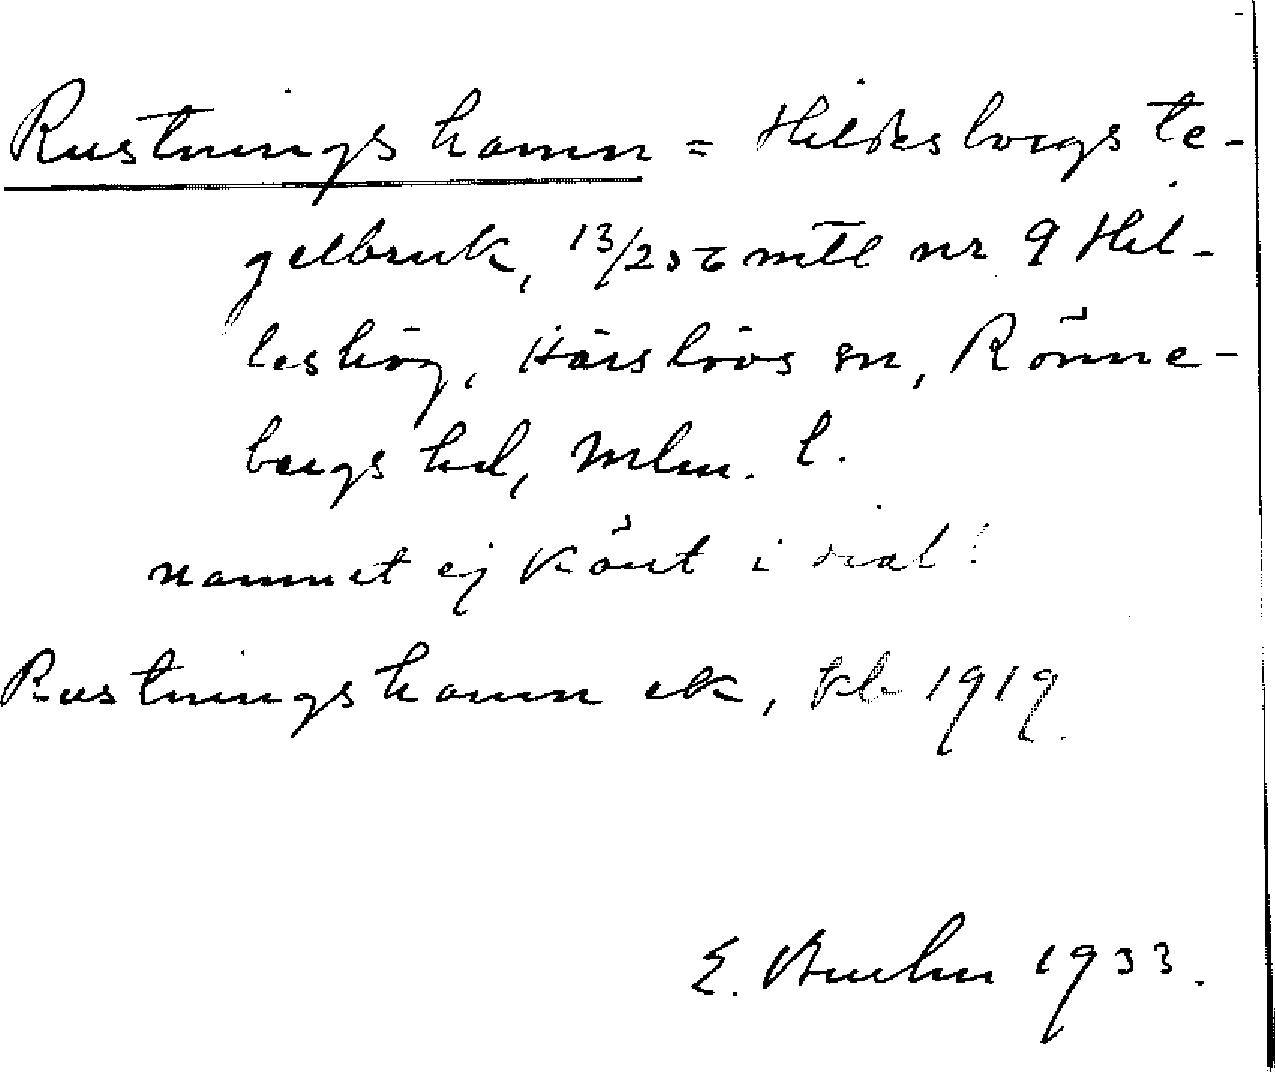 Rustningshamn = Hildesborgs te-
gelbruk, 13/256 mtl nr 9 Hil-
leshög, Härslövs sn, Rönne-
bergs hd, Mlm. l.
namnet ej känt i dial!
Rustningshamn ek, 1919.
E. Bruhn 1933.